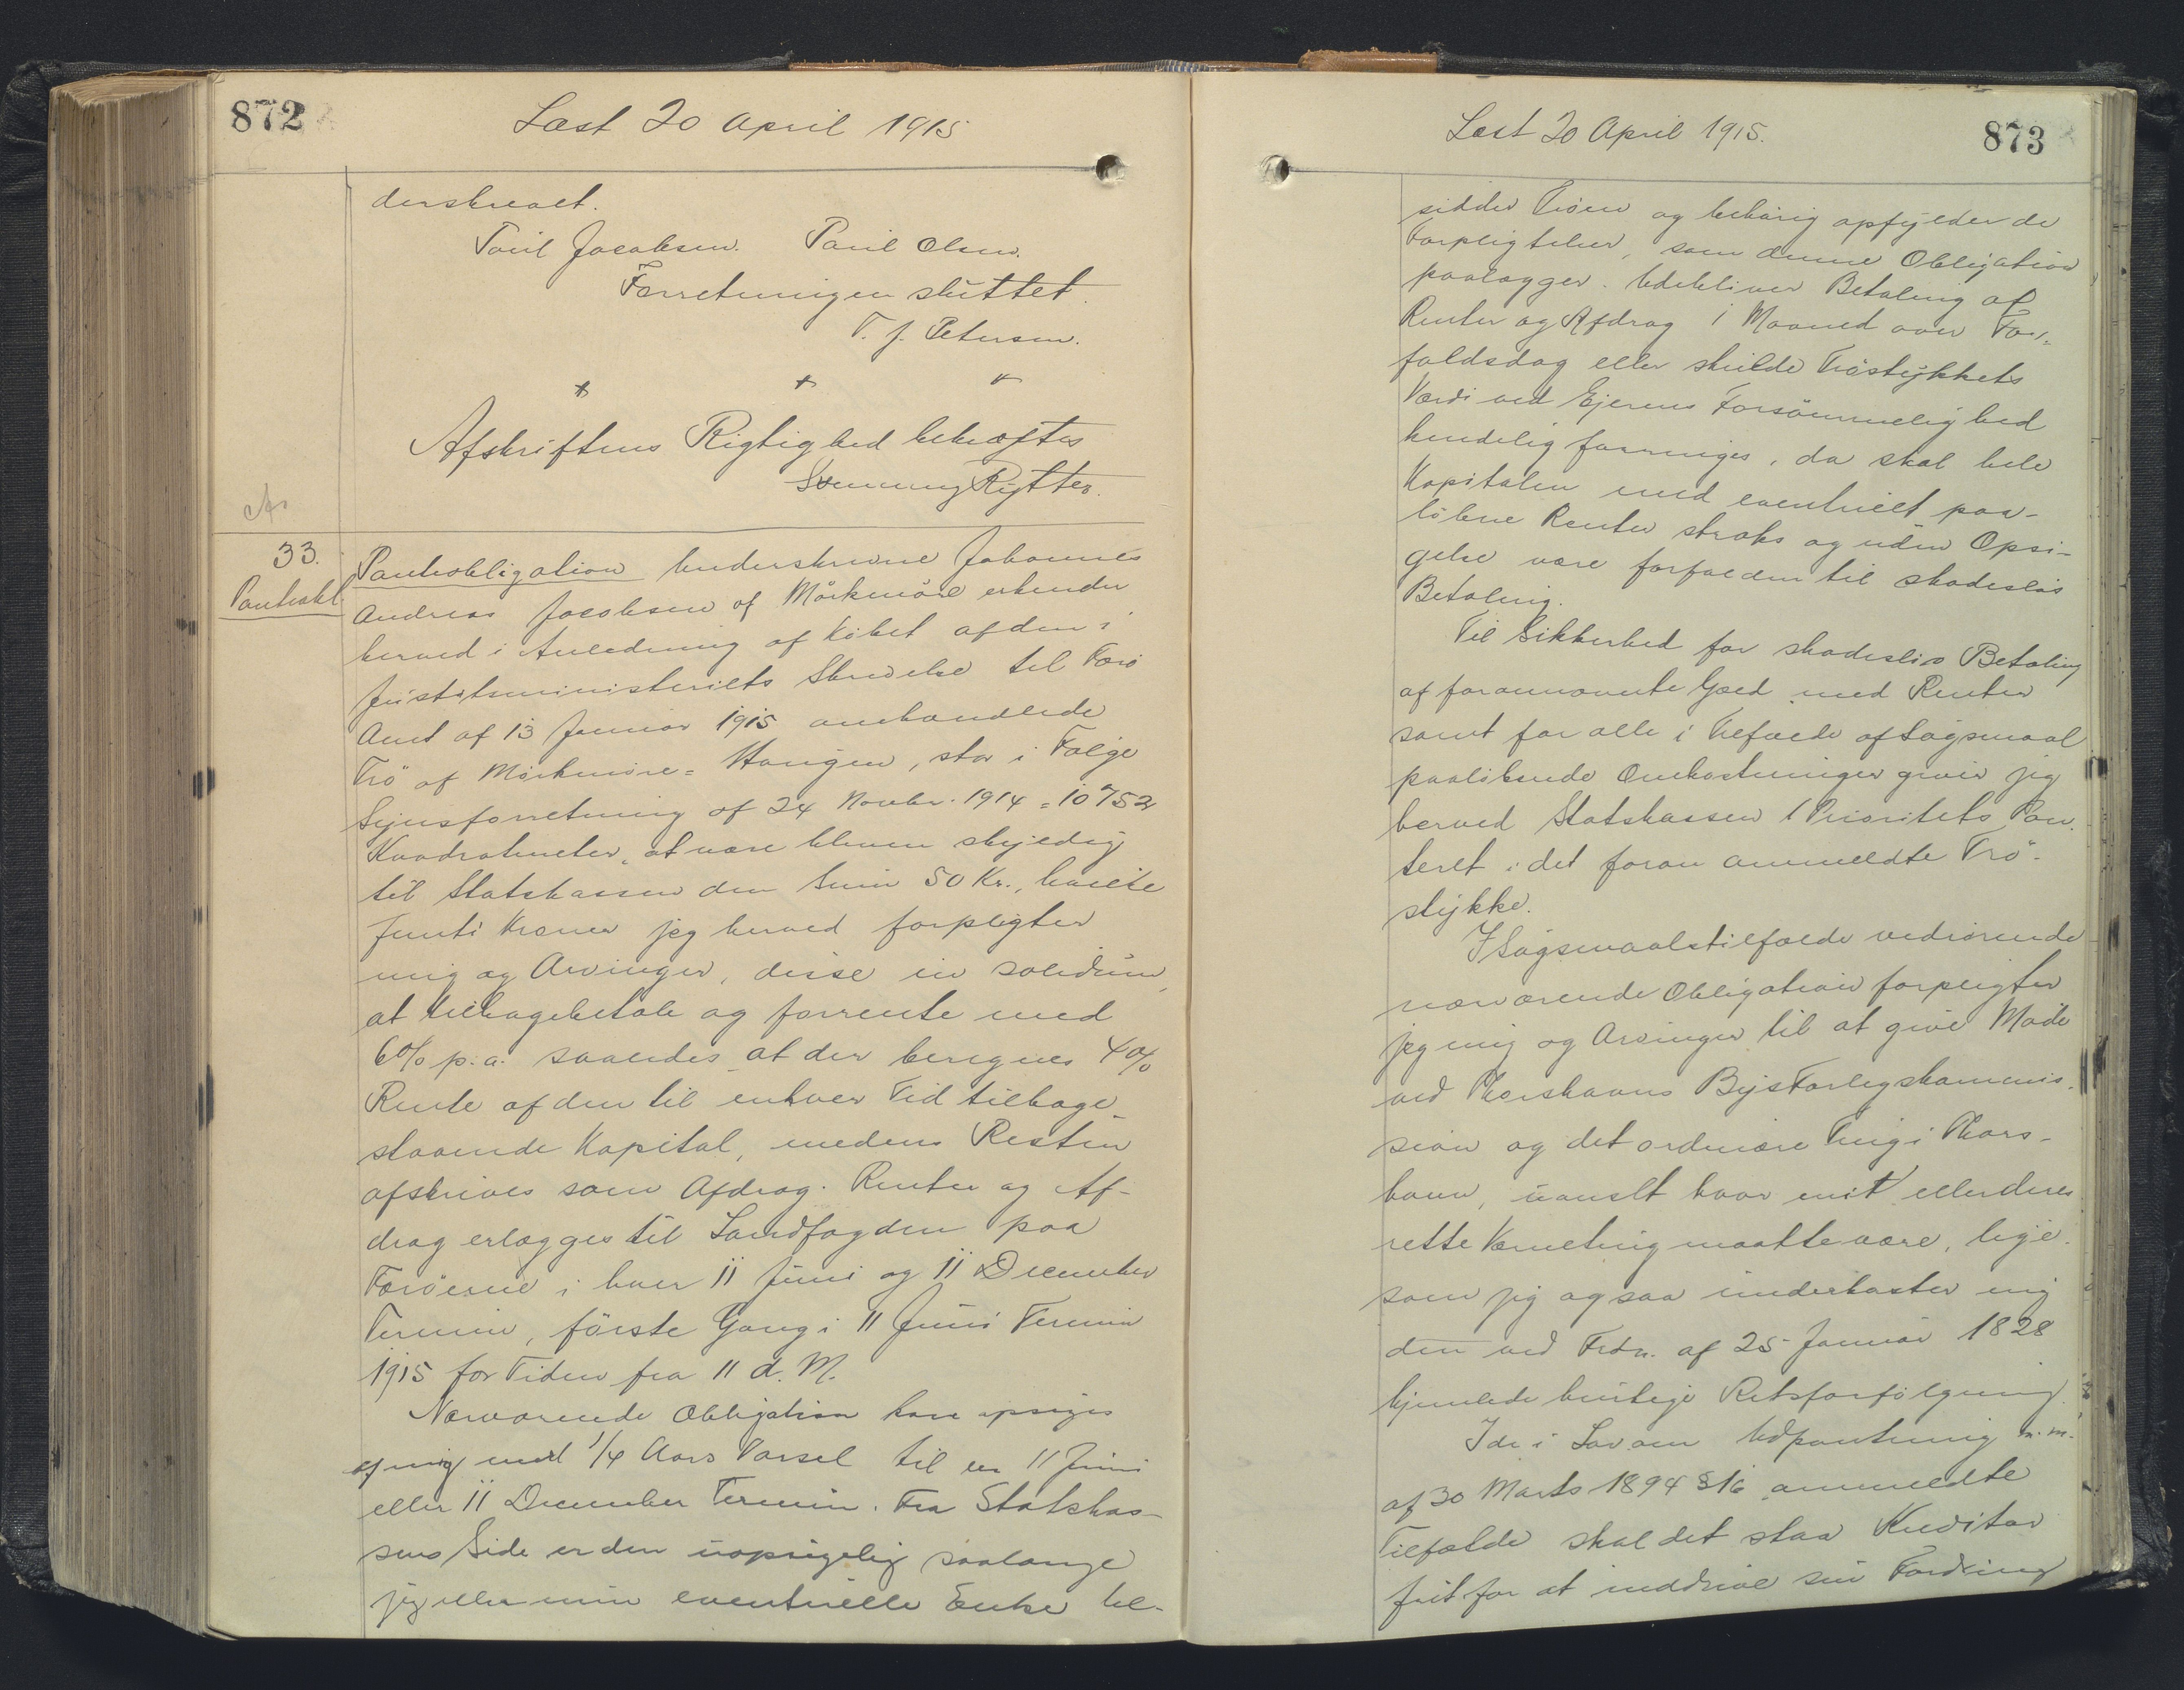 872
Læst 20 April 1915
derskrevet.
Poul Jacobsen. Poul Olsen.
Forretningen sluttet.
T. J. Petersen.
Afskriftens Rigtighed bekræftes
Svenning Rytter.
33.
Pantobl.
Pantobligation Underskrevne Johannes
Andreas Jacobsen af Mörkmöre erkender
herved i Anledning af Købet af den i
Justitsministeriets Skrivelse til Færö
Amt af 13 Januar 1915 omhandlede
Trö af Mörkmöre-Haugen, stor i Følge
Synsforretning af 24 Novbr. 1914 = 10752
Kvadratmeter, at være bleven skyldig
til Statskassen den Sum 50 Kr., hvilke
femti Kroner jeg herved forpligter
mig og Arvinger, disse in solidum,
at tilbagebetale og forrente med
6% p.a. saaledes at der beregnes 4%
Rente af den til enhver Tid tilbage-
staaende Kapital, medens Resten
afskrives som Afdrag. Renter og Af-
drag erlægges til Landfogden paa
Færöerne i hver 11 Juni og 11 December
Termin, förste Gang i 11 Juni Termin
1915 for Tiden fra 11 d. M.
Nærværende Obligation kan opsiges
af mig med 1/4 Aars Varsel til en 11 Juni
eller 11 December Termin. Fra Statskas-
sens Side er den uopsigelig saalænge
jeg eller min eventuelle Enke be-
Læst 20 April 1915.
873
sidder Tröen og behörig opfylder de
Forpligtelser, som denne Obligation
paalægger. Udebliver Betaling af
Renter og Afdrag 1 Maaned over For-
faldsdag eller skulde Tröstykkets
Værdi ved Ejerens Forsömmelighed
kendelig forringes, da skal hele
Kapitalen med eventuelt paa-
löbne Renter straks og uden Opsi-
gelse være forfalden til skadeslös
Betaling.
Til Sikkerhed for skadeslös Betaling
af forannævnte Gæld med Renter
samt for alle i Tilfælde af Sögsmaal
paalöbende Omkostninger giver jeg
herved Statskassen 1 Prioritets Pan-
teret i det foran ommeldte Trö-
stykke.
I Sögsmaalstilfælde vedrörende
nærværende Obligation forpligter
jeg mig og Arvinger til at give Möde
ved Thorshavns Bys Forligskommis-
sion og det ordinære Ting i Thors-
havn, uanset hvor mit eller deres
rette Værneting maatte være, lige-
som jeg ogsaa underkaster mig
den ved Frdn. af 25 Januar 1828
hjemlede hurtige Retsforfölgning.
I de i Lov om Udpantning m.m.
af 30 Marts 1894 § 16 ommeldte
Tilfælde skal det staa Kreditor
frit for at inddrive sin Fordring